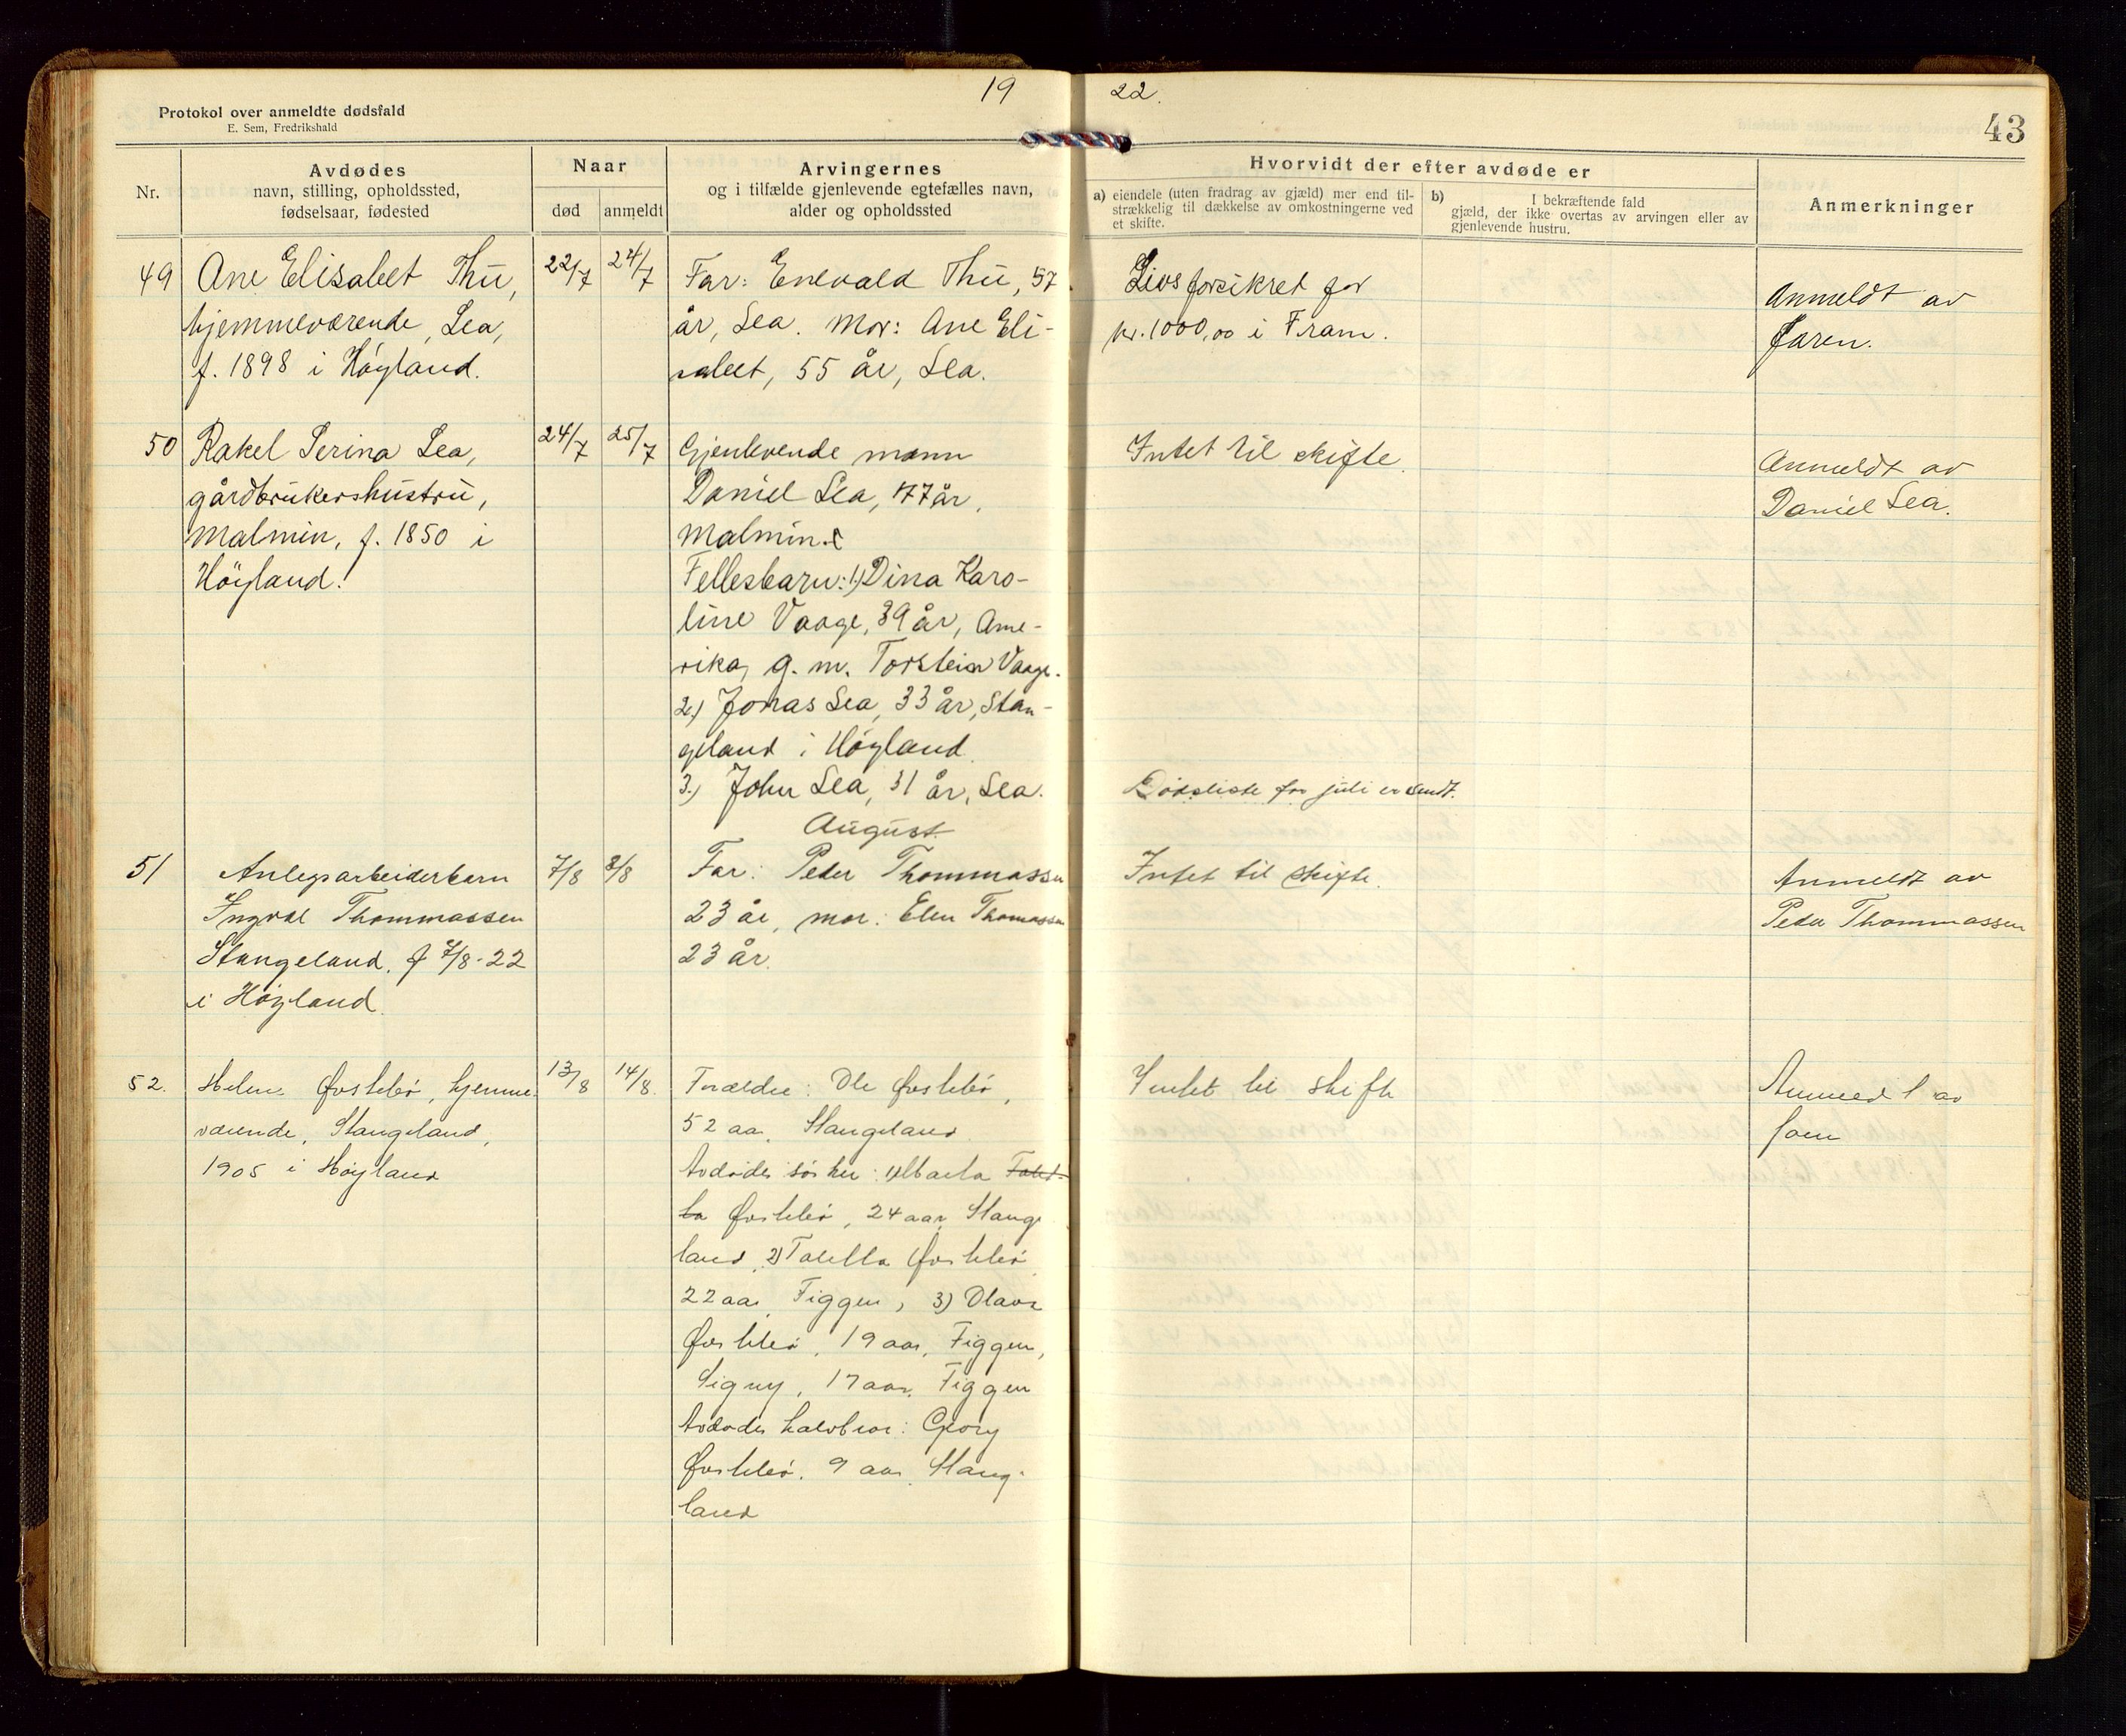 19
22.
Protokol over anmeldte dødsfald
E. Sem, Fredrikshald
43
Nr.
Avdødes
navn, stilling, opholdssted,
fødselsaar, fødested
Naar
død
anmeldt
Arvingernes
og i tilfælde gjenlevende egtefælles navn,
alder og opholdssted
Hvorvidt der efter avdøde er
a) eiendele (uten fradrag av gjæld) mer end til-
strækkelig til dækkelse av omkostningerne ved
et skifte.
b) I bekræftende fald
gjæld, der ikke overtas av arvingen eller av
gjenlevende hustru.
Anmerkninger
49
Ane Elisabet Thu,
hjemmeværende, Lea,
f. 1898 i Høyland.
22/7
24/7
Far: Enevald Thu, 57
år, Lea. Mor: Ane Eli-
sabet, 55 år, Lea.
Livsforsikret for
kr. 1000,00 i Fram.
Anmeldt av
faren.
50
Rakel Serina Lea,
gårdbrukershustru,
Malmin, f. 1850 i
Høyland.
24/7
25/7
Gjenlevende mann
Daniel Lea, 77 år,
Malmin.
Fellesbarn: 1) Dina Karo-
line Vaage, 39 år, Ame-
rika, g. m. Torstein Vaage.
2) Jonas Lea, 33 år, Stan-
geland i Høyland.
3.) John Lea, 31 år, Lea.
Intet til skifte.
Dødsliste for juli er sendt.
Anmeldt av
Daniel Lea.
August
51
Anlegsarbeiderbarn
Ingval Thommassen
Stangeland, f 7/8-22
i Høyland
7/8
8/8
Far: Peder Thommassen
23 år, mor: Elen Thomassen
23 år.
Intet til skifte.
Anmeldt av
Peder Thommassen
52.
Helene Øvstebø, hjemme
værende, Stangeland,
1905 i Høyland
13/8
14/8.
Forældre: Ole Øvstebø,
52 aar, Stangeland
Avdødes søsken: 1) Marta Tabit-
ta Øvstebø, 24 aar, Stange
land, 2) Tabitta Øvstebø
22 aar, Figgen, 3) Olava
Øvstebø, 19 aar, Figgen,
Signy, 17 aar, Figgen
Avdødes halvbror: Georg
Øvstebø. 9 aar. Stang-
land
Intet til skifte
Anmeldt av
faren